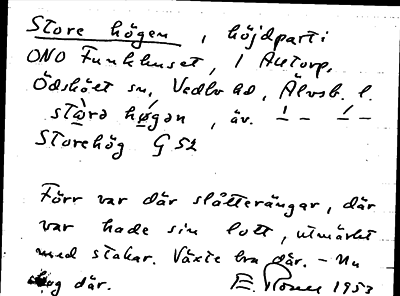 Store högen, höjdparti
ONO Funkhuset, 1 Autorp,
Ödskölt sn, Vedbo hd, Älvsb. l.
högən, äv.
Storehög G 52
Förr var där slåtterängar, där
var hade sin lott, utmärkt
med stakar. Växte bra där. – Nu
skog där. E. 1953